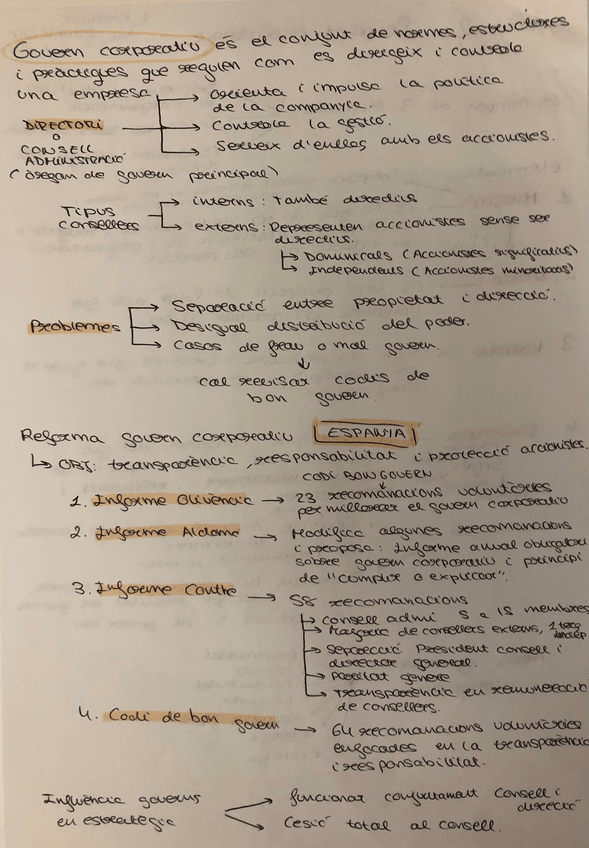 Govern corporatiu és el conjunt de normes, estructures
i pràctiques que regulen com es dirigeix i controla
una empresa
→ Orienta i impulsa la política
de la companyia.
DIRECTORI → Controla la gestió.
O
CONSELL → Serveix d'enllaç amb els accionistes.
ADMINISTRACIÓ
(òrgan de govern principal)
Tipus → interns: També directius
consellers → externs: Representen accionistes sense ser
directius.
→ Dominicals (Accionistes significatius)
→ Independents (Accionistes minoritaris)
→ Separació entre propietat i direcció.
Problemes → Desigual distribució del poder.
→ Casos de frau o mal govern.
↓
cal revisar codis de
bon govern.
Reforma govern corporatiu ESPANYA
↳ OBJ: transparència, responsabilitat i protecció accionistes.
CODI BON GOVERN
1. Informe Olivencia → 23 recomanacions voluntàries
per millorar el govern corporatiu
2. Informe Aldama → Modifica algunes recomanacions
i proposa: Informe anual obligatori
sobre govern corporatiu i principi
de "complir o explicar".
3. Informe Conthe → 58 recomanacions
→ Consell admi 5 a 15 membres
→ Majoria de consellers externs, 1 terç indep
→ Separació President consell i
director general.
→ Paritat gènere
→ Transparència en remuneració
de consellers.
4. Codi de bon govern → 64 recomanacions voluntàries
enfocades en la transparència
i responsabilitat.
Influència governs → funcionar conjuntament consell i
direcció
en estratègia → Cessió total al consell.